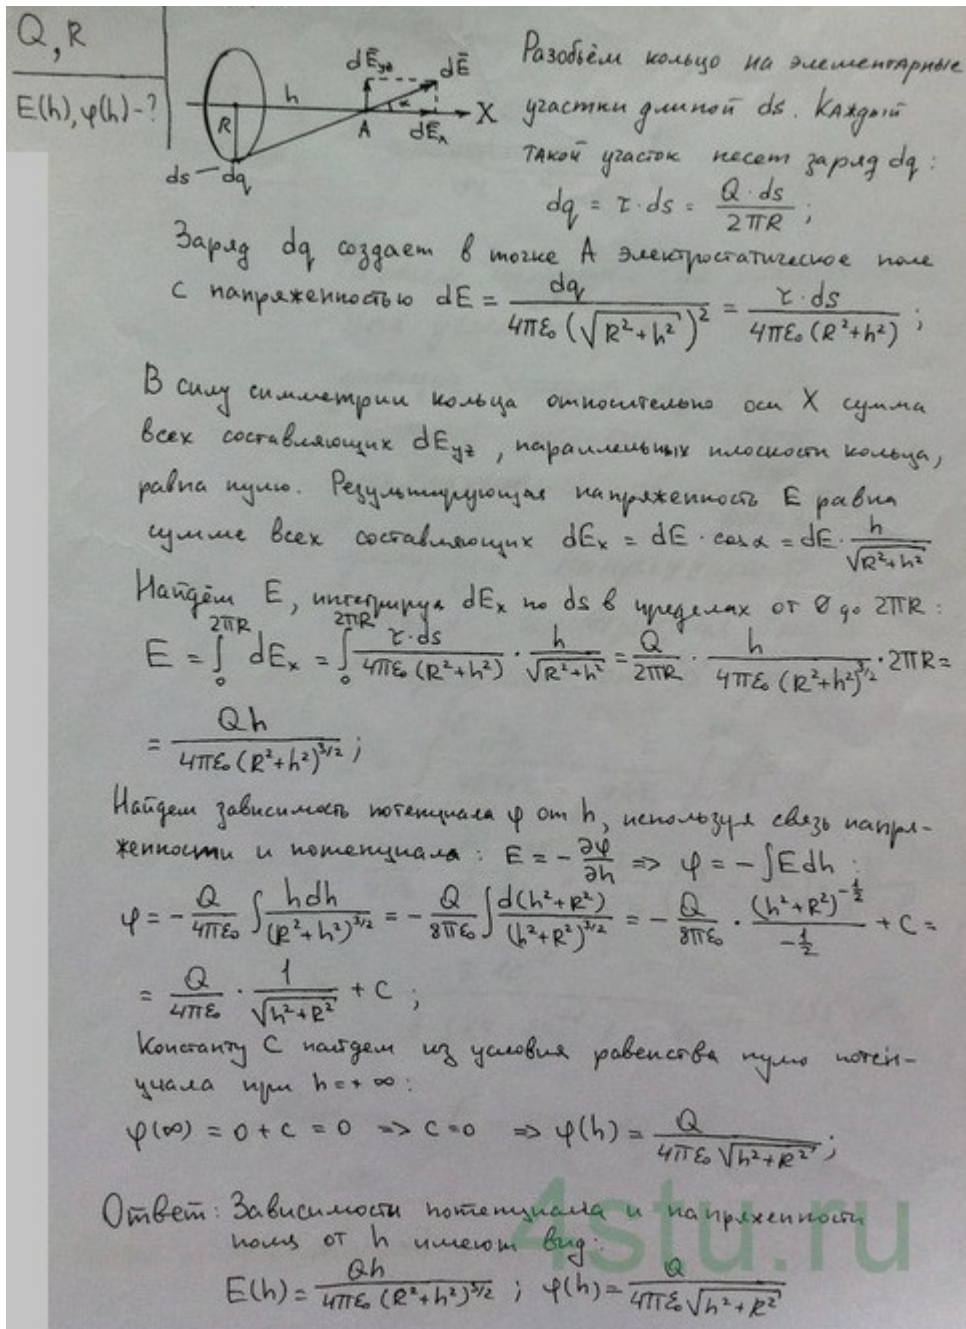 Q, R
E(h), φ(h) - ?
R
h
A
X
α
dE̅yz
dE̅
dE̅x
ds — dq
Разобьём кольцо на элементарные
участки длиной ds. Каждый
такой участок несет заряд dq:
dq = τ·ds = Q·ds / 2πR ;
Заряд dq создает в точке А электростатическое поле
с напряженностью dE = dq / 4πε₀(√(R²+h²))² = τ·ds / 4πε₀(R²+h²) ;
В силу симметрии кольца относительно оси X сумма
всех составляющих dEyz, параллельных плоскости кольца,
равна нулю. Результирующая напряженность E равна
сумме всех составляющих dEx = dE·cosα = dE· h / √(R²+h²)
Найдём E, интегрируя dEx по ds в пределах от 0 до 2πR:
E = ∫₀^2πR dEx = ∫₀^2πR τ·ds / 4πε₀(R²+h²) · h / √(R²+h²) = Q / 2πR · h / 4πε₀(R²+h²)^3/2 · 2πR =
= Qh / 4πε₀(R²+h²)^3/2 ;
Найдем зависимость потенциала φ от h, используя связь напря-
женности и потенциала: E = - ∂φ/∂h => φ = - ∫Edh :
φ = - Q / 4πε₀ ∫ hdh / (R²+h²)^3/2 = - Q / 8πε₀ ∫ d(h²+R²) / (h²+R²)^3/2 = - Q / 8πε₀ · (h²+R²)^-1/2 / -1/2 + C =
= Q / 4πε₀ · 1 / √(h²+R²) + C ;
Константу C найдем из условия равенства нулю потен-
циала при h=+∞:
φ(∞) = 0 + C = 0 => C=0 => φ(h) = Q / 4πε₀√(h²+R²) ;
Ответ: Зависимости потенциала и напряженности
поля от h имеют вид:
E(h) = Qh / 4πε₀(R²+h²)^3/2 ; φ(h) = Q / 4πε₀√(h²+R²)
4stu.ru